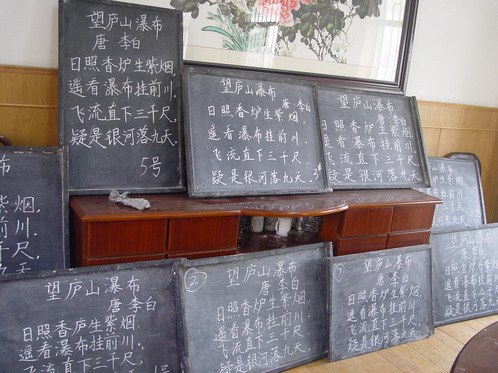 望庐山瀑布
唐 李白
日照香炉生紫烟，
遥看瀑布挂前川，
飞流直下三千尺，
疑是银河落九天。
5号
望庐山瀑布
唐 李白
日照香炉生紫烟，
遥看瀑布挂前川，
飞流直下三千尺，
疑是银河落九天。
3#
望庐山瀑布
唐 李白
日照香炉生紫烟，
遥看瀑布挂前川，
飞流直下三千尺，
疑是银河落九天。
布
紫烟，
前川，
尺，
望庐山瀑布
唐 李白
日照香炉生紫烟，
遥看瀑布挂前川，
飞流直下三千尺
②
望庐山瀑布
唐 李白
日照香炉生紫烟，
遥看瀑布挂前川，
飞流直下三千尺，
疑是银河落九天。
①
望庐山瀑布
唐 李白
日照香炉生紫烟，
遥看瀑布挂前川，
飞流直下三千尺，
疑是银河落九天。
望庐山瀑布